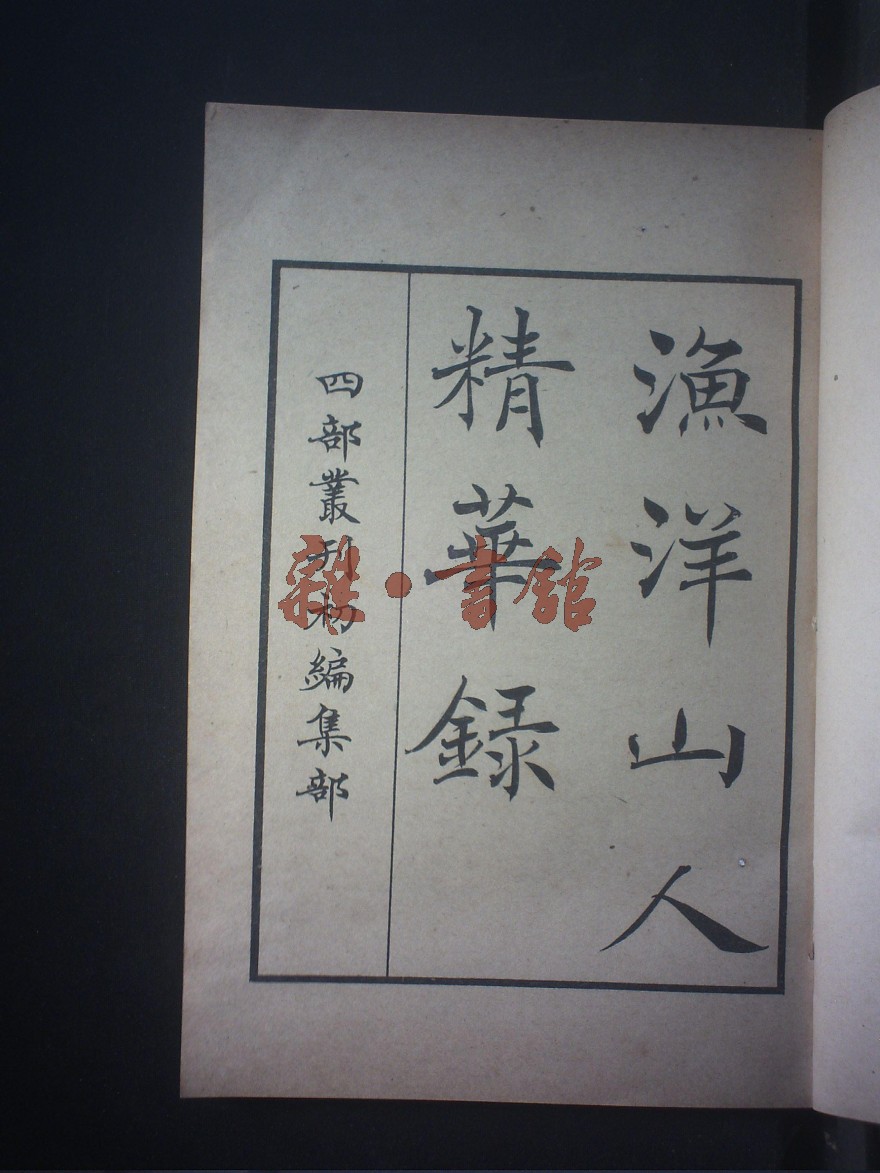 漁洋山人
精華録
四部叢刊初編集部
雜·書館